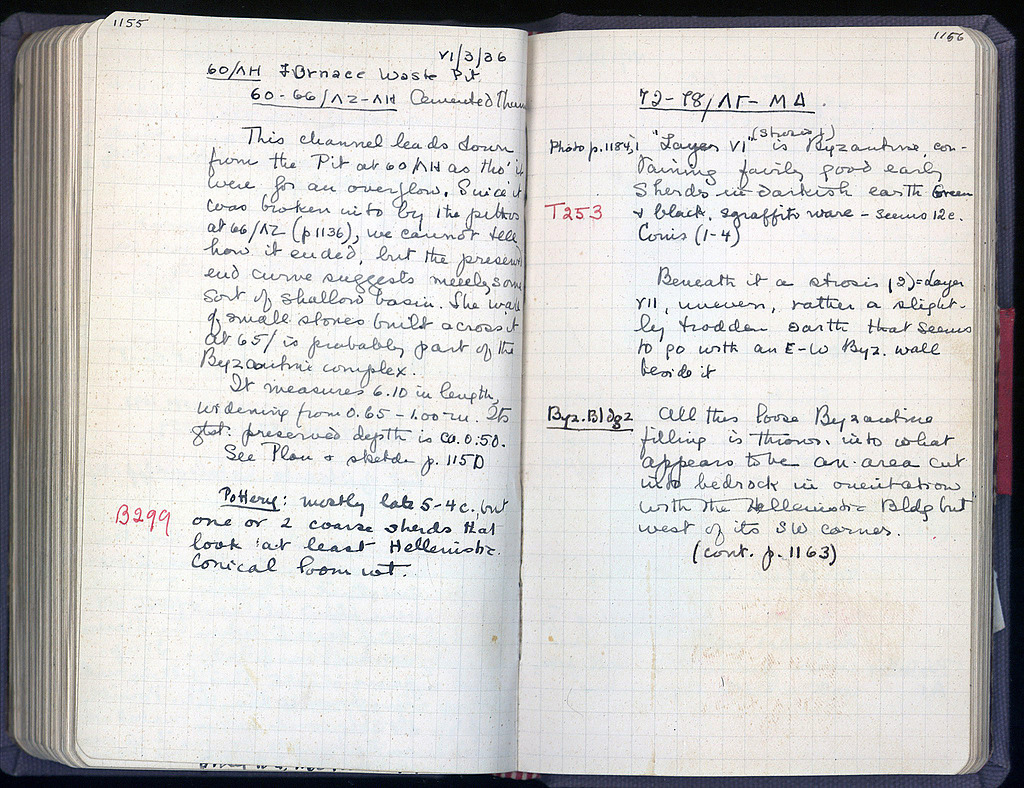 1155
VI/3/36
60/ΛΗ Furnace Waste Pit
60-66/ΛΖ-ΛΗ Cemented
This channel leads down
from the Pit at 60/ΛΗ as tho' it
were for an overflow. Since it
was broken into by the pithos
at 66/ΛΖ (p1136), we cannot tell
how it ended, but the present
end curve suggests merely some
sort of shallow basin. The wall
of small stones built across it
at 65/ is probably part of the
Byzantine complex.
It measures 6.10 in length,
widening from 0.65-1.00 m. Its
gtst. preserved depth is ca. 0.50.
See Plan & sketch p. 1150
B299
Pottery: mostly late 5-4 c. but
one or 2 coarse sherds that
look at least Hellenistic.
Conical loom wt.
1156
72-78/ΛΓ-ΜΔ
Photo p.1184, i
"Layer VI" (Strosis 1) is Byzantine, con-
taining fairly good early
sherds in darkish earth Green
T253
& black, sgraffito ware - seems 12c.
Coins (1-4)
Beneath it a strosis (2) = Layer
VII, uneven, rather a slight-
ly trodden earth that seems
to go with an E-W Byz. wall
beside it
Byz. Bldg 2
All this loose Byzantine
filling is thrown into what
appears to be an area cut
into bedrock in orientation
with the Hellenistic Bldg but
west of its SW corner.
(cont. p. 1163)